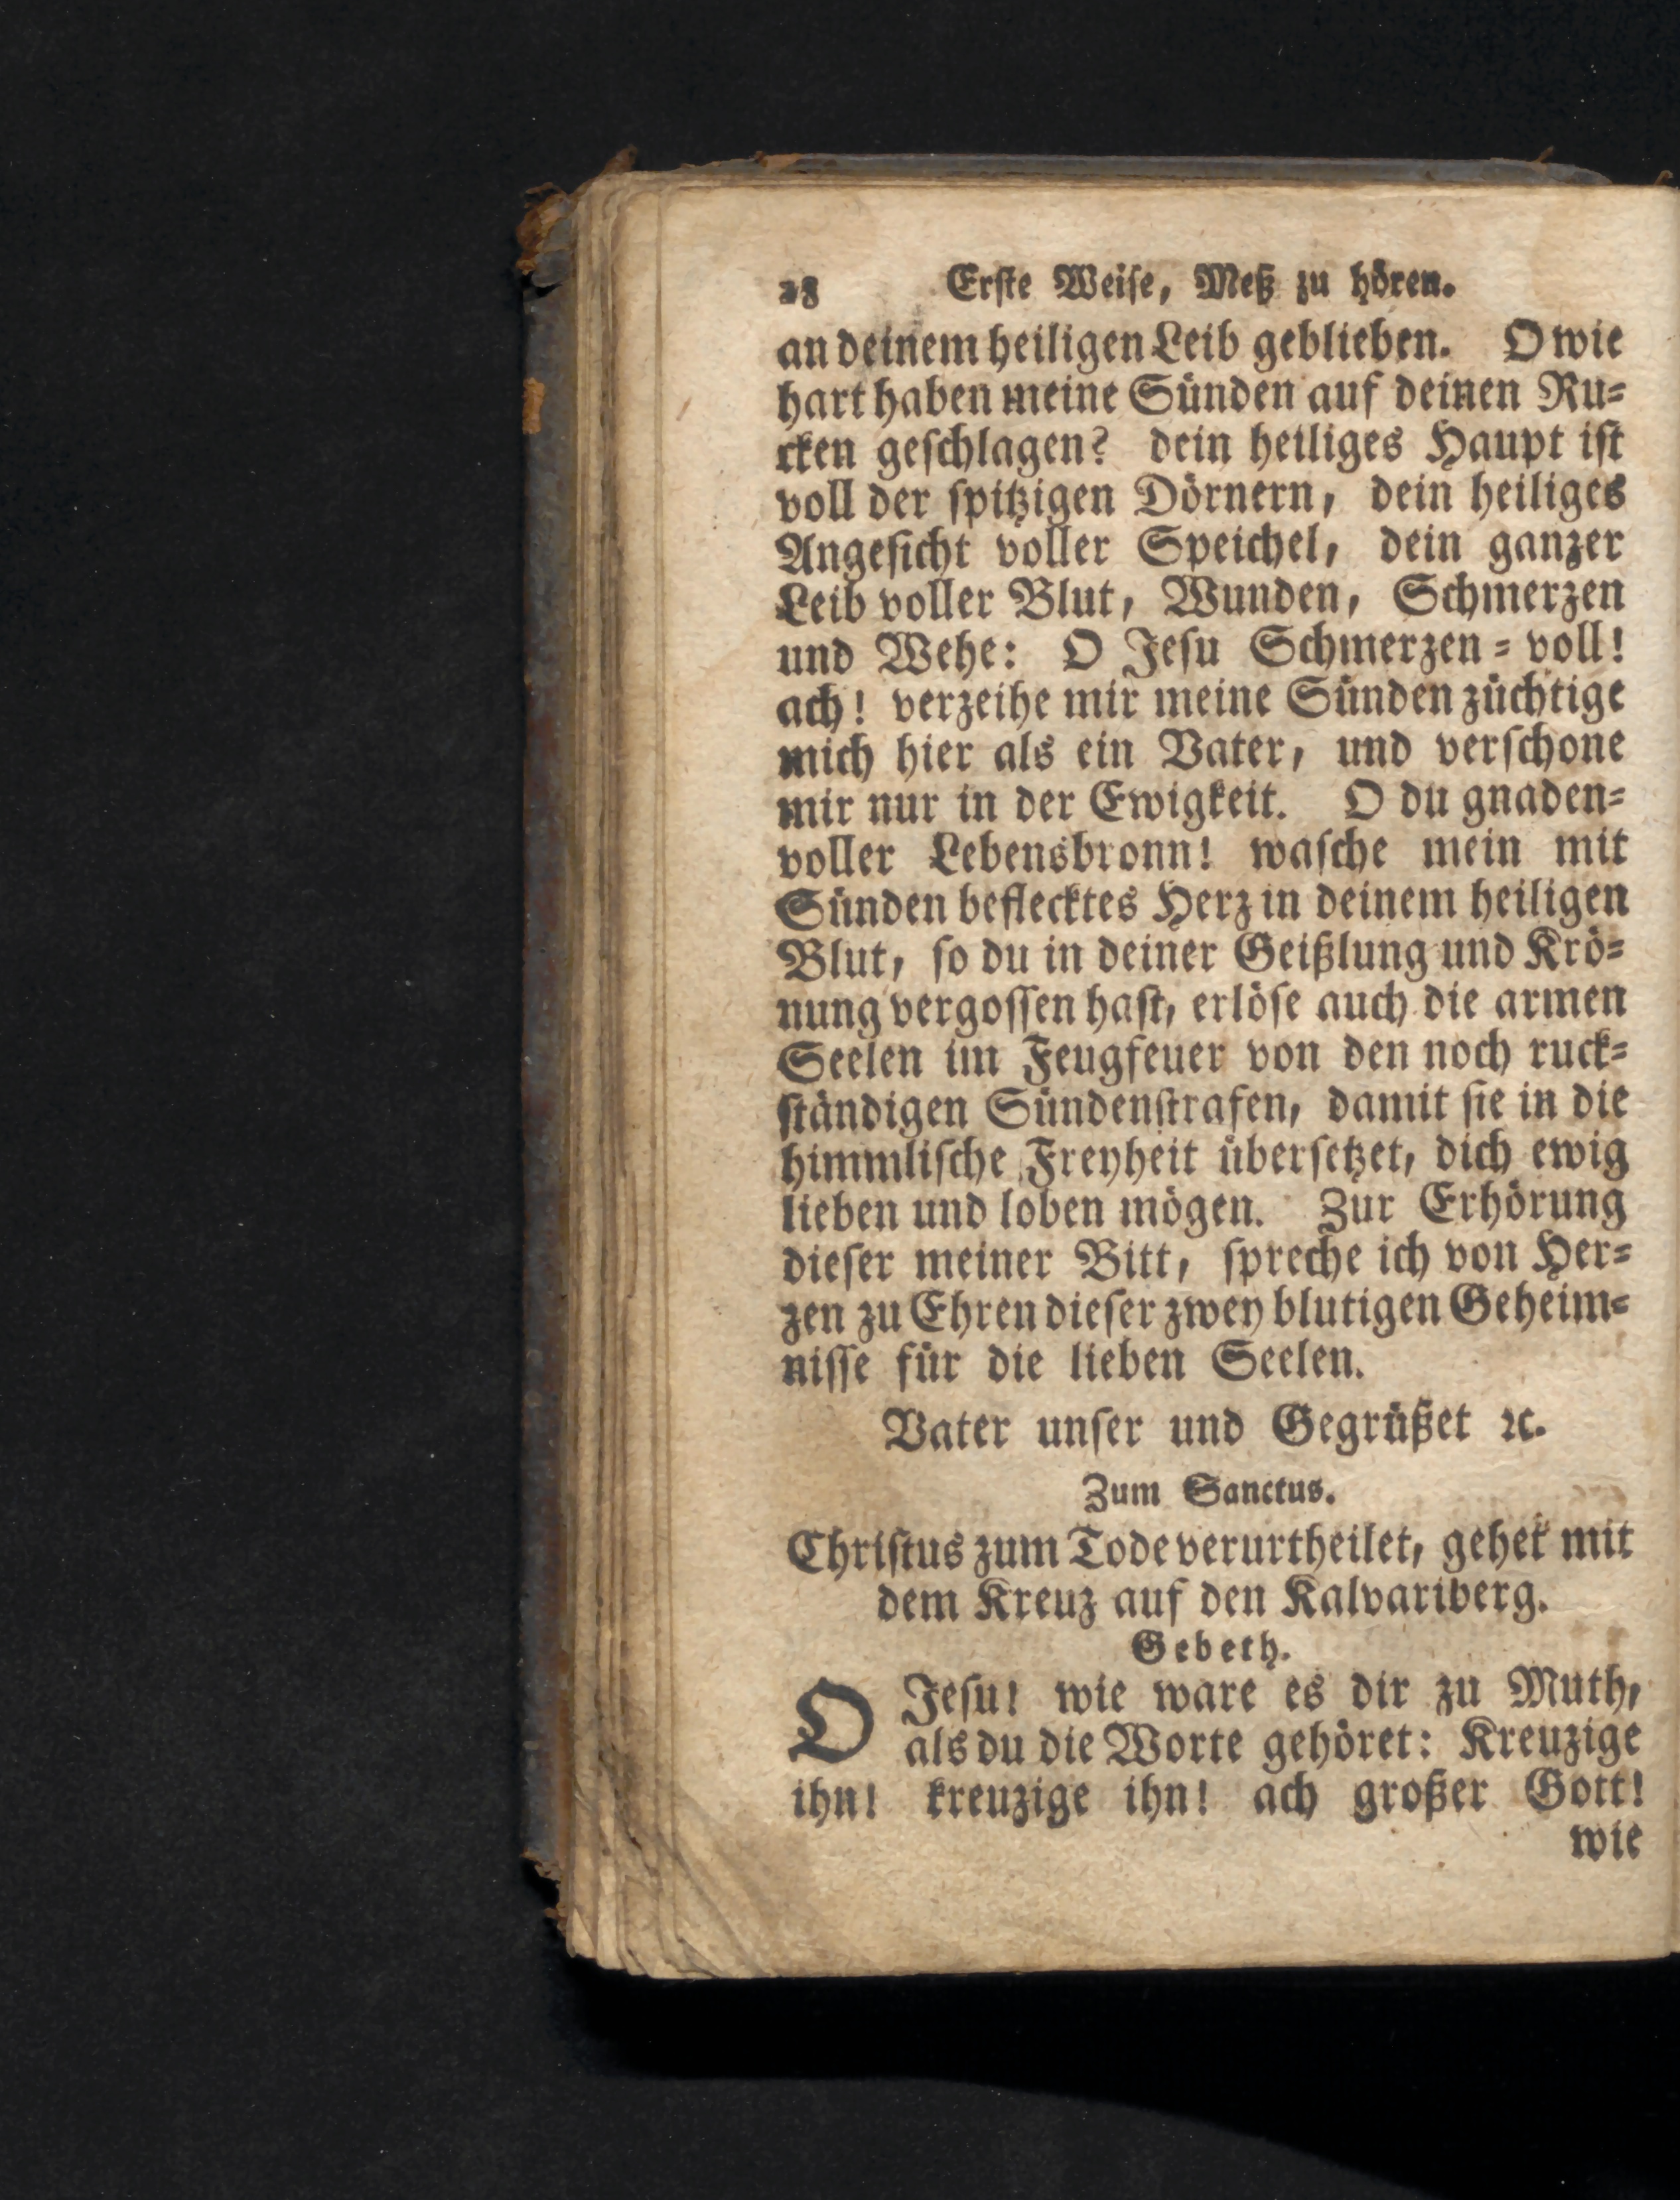 28 Erste Weise, Meß zu hören.
an deinem heiligen Leib geblieben. O wie
hart haben meine Sünden auf deinen Ru=
cken geschlagen? dein heiliges Haupt ist
voll der spitzigen Dörnern, dein heiliges
Angesicht voller Speichel, dein ganzer
Leib voller Blut, Wunden, Schmerzen
und Wehe: O Jesu Schmerzen=voll!
ach! verzeihe mir meine Sünden züchtige
mich hier als ein Vater, und verschone
mir nur in der Ewigkeit. O du gnaden=
voller Lebensbronn! wasche mein mit
Sünden beflecktes Herz in deinem heiligen
Blut, so du in deiner Geißlung und Krö=
nung vergossen hast, erlöse auch die armen
Seelen im Feugfeuer von den noch ruck=
ständigen Sündenstrafen, damit sie in die
himmlische Freyheit übersetzet, dich ewig
lieben und loben mögen. Zur Erhörung
dieser meiner Bitt, spreche ich von Her=
zen zu Ehren dieser zwey blutigen Geheim=
nisse für die lieben Seelen.
Vater unser und Gegrüßet ꝛc.
Zum Sanctus.
Christus zum Tode verurtheilet, gehet mit
dem Kreuz auf den Kalvariberg.
Gebeth.
O Jesu! wie ware es dir zu Muth,
als du die Worte gehöret: Kreuzige
ihn! kreuzige ihn! ach großer Gott!
wie